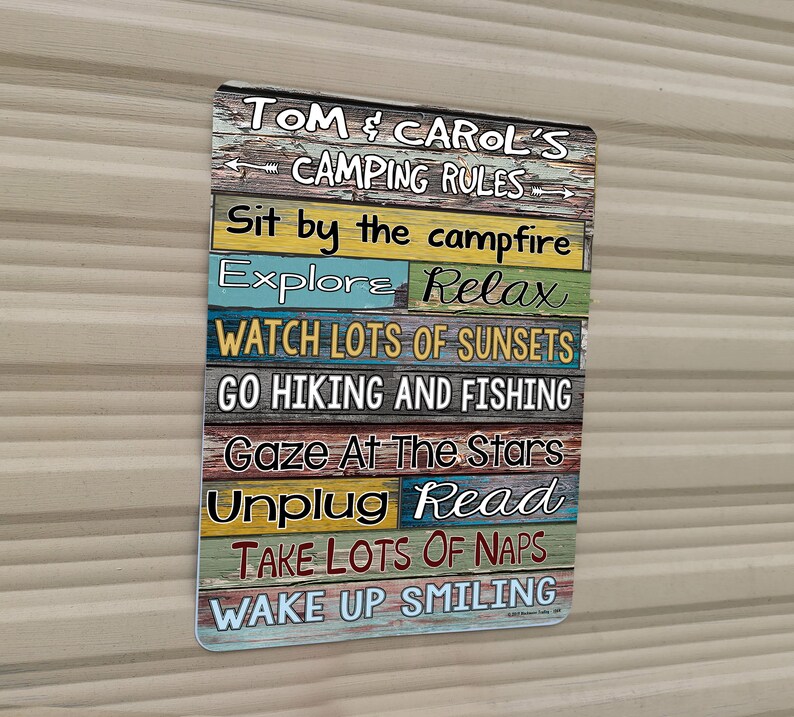 TOM & CAROL'S
CAMPING RULES
Sit by the campfire
Explore Relax
WATCH LOTS OF SUNSETS
GO HIKING AND FISHING
Gaze At The Stars
Unplug Read
TAKE LOTS OF NAPS
WAKE UP SMILING